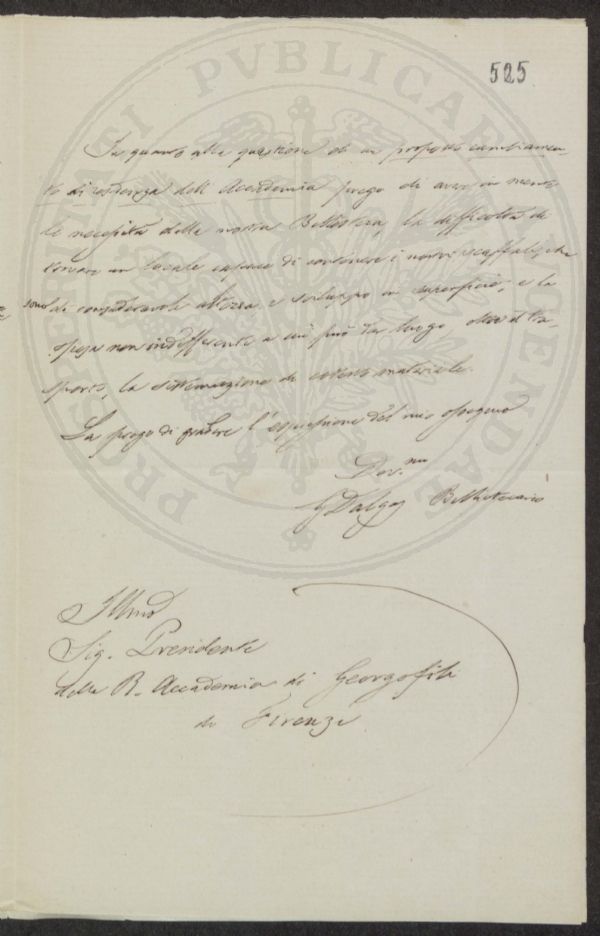 525
In quanto alla questione di un proposto cambiamen-
to di residenza dell' Accademia prego di aver in mente
le necessità della nostra Biblioteca, la difficoltà di
trovare un locale capace di contenere i nostri scaffali, che
sono di considerevole altezza e sviluppo in superficie, e la
spesa non indifferente a cui può dar luogo, oltre il tra-
sporto, la sistemazione di cotesto materiale.
La prego di gradire l'espressione del mio ossequio
Dev.mo
G Dalgas Bibliotecario
Illmo
Sig. Presidente
della R. Accademia di Georgofili
di Firenze
PROSPERITATI PVBLICAE AVGENDAE